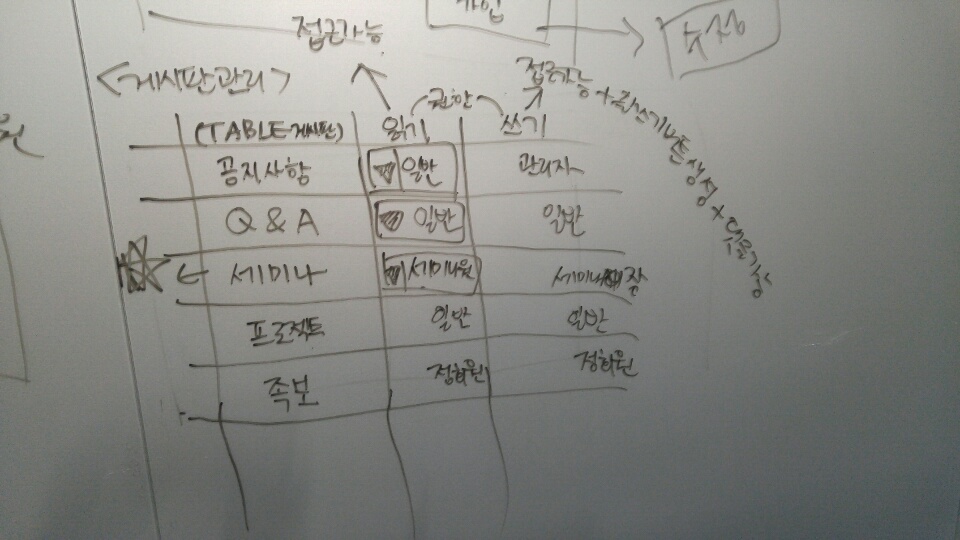 가입
접근가능
<게시판관리>
권한
접근가능+글쓰기버튼생성+댓글가능
(TABLE-게시판) 읽기 쓰기
공지사항 일반 관리자
Q & A 일반 일반
세미나 세미나원 세미나장
프로젝트 일반 일반
족보 정회원 정회원